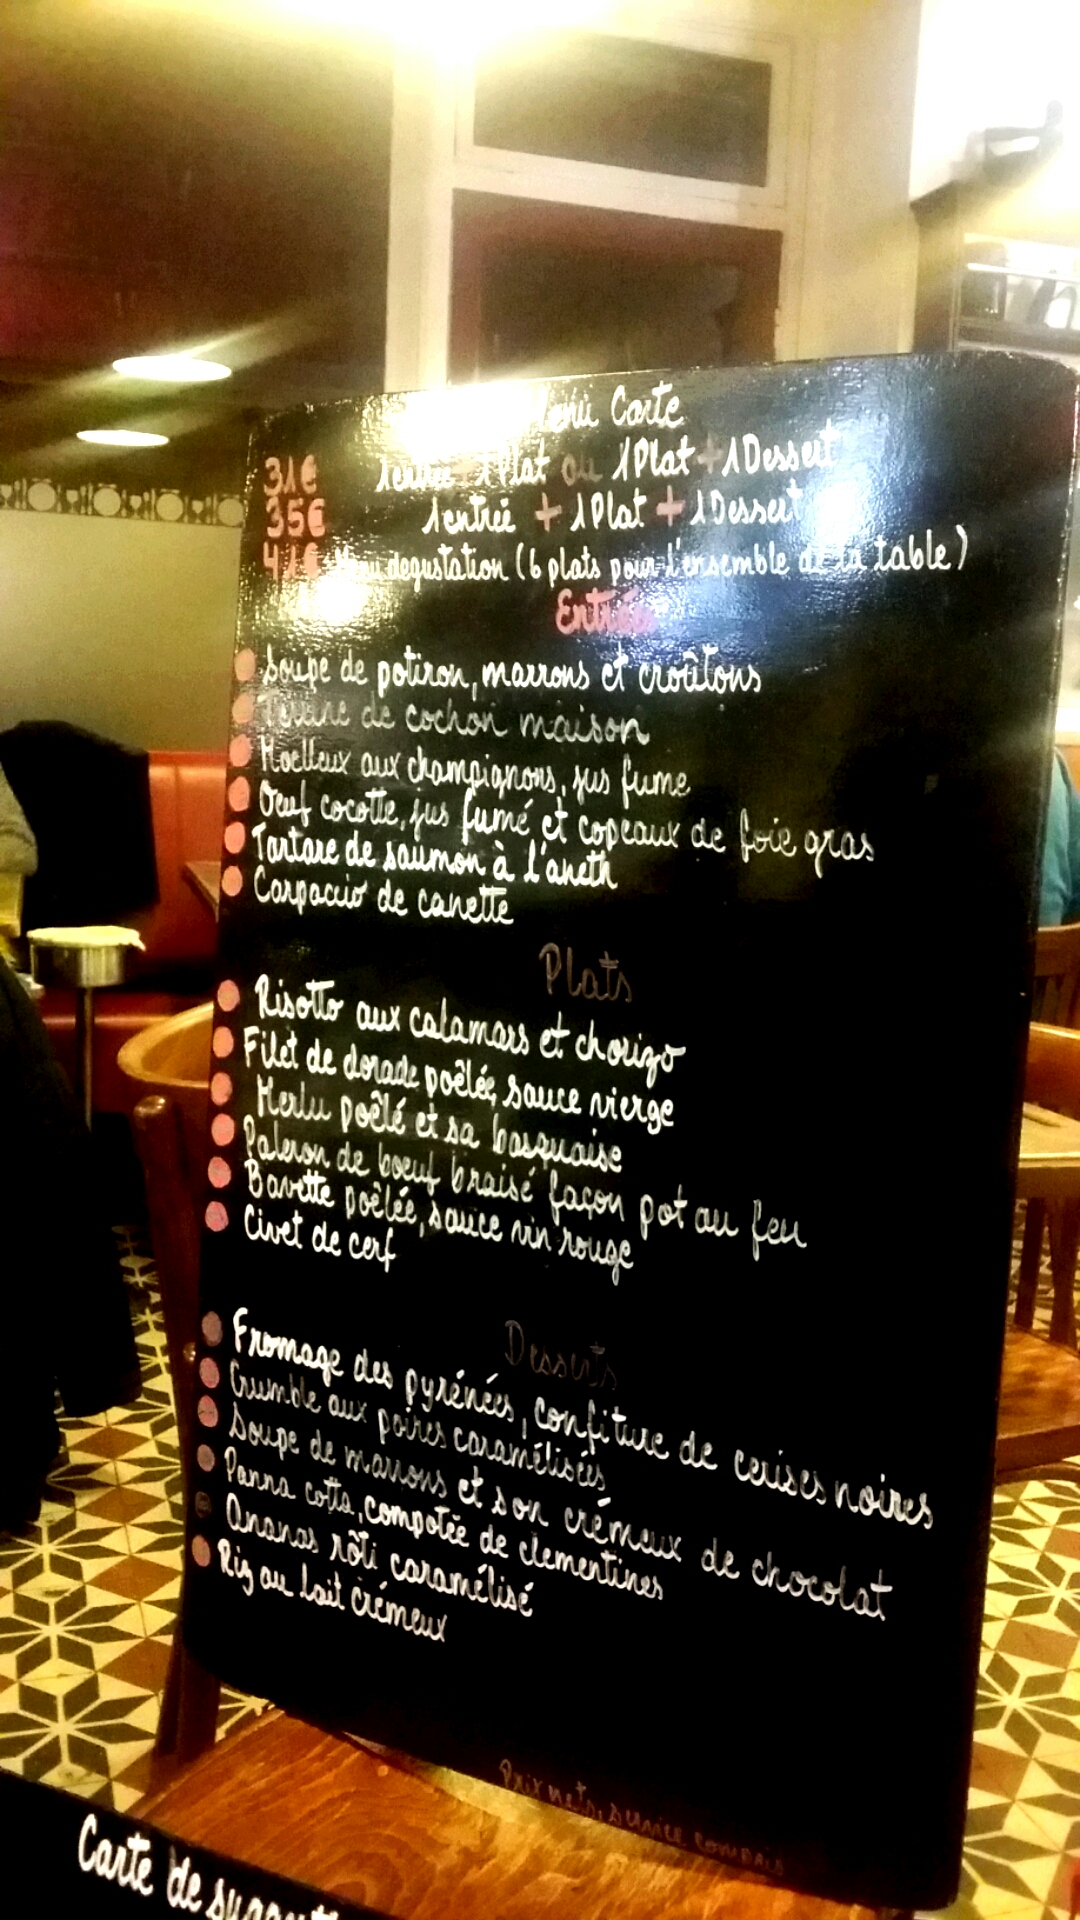 Menu Carte
31€ 1entrée 1Plat ou 1Plat + 1Dessert
35€ 1entrée + 1Plat + 1Dessert
41€ Menu degustation (6 plats pour l'ensemble de la table)
Entrées
Soupe de potiron, marrons et croûtons
Terrine de cochon maison
Moelleux aux champignons, jus fume
Oeuf cocotte, jus fumé et copeaux de foie gras
Tartare de saumon à l'aneth
Carpaccio de canette
Plats
Risotto aux calamars et chorizo
Filet de dorade poêlée, sauce vierge
Merlu poêlé et sa basquaise
Paleron de boeuf braisé façon pot au feu
Bavette poêlée, sauce vin rouge
Civet de cerf
Desserts
Fromage des pyrénées, confiture de cerises noires
Crumble aux poires caramélisées
Soupe de marrons et son crémeux de chocolat
Panna cotta, compotée de clementines
Ananas rôti caramélisé
Riz au lait crémeux
Prix nets, service compris
Carte de